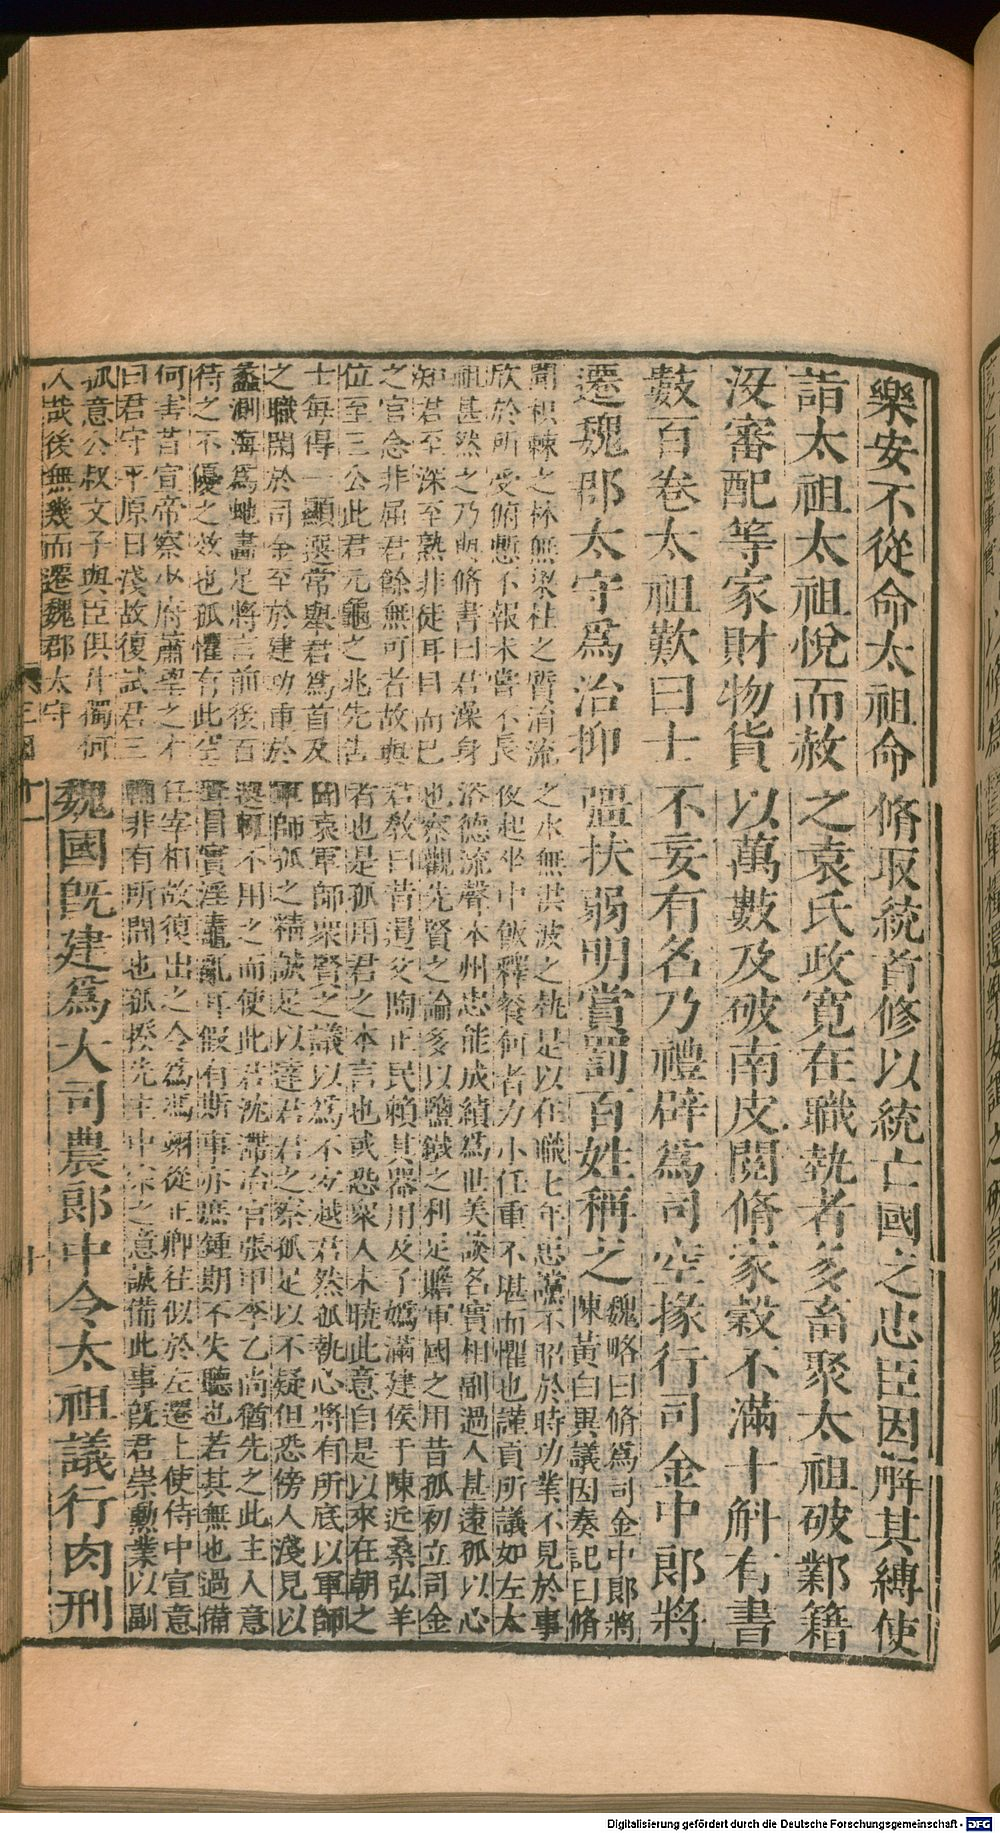 樂安不從命太祖命脩取統首修以統亡國之忠臣因解其縛使
詣太祖太祖悅而赦之袁氏政寬在職執者多畜聚太祖破鄴籍
沒審配等家財物貨以萬數及破南皮閱脩家穀不滿十斛有書
數百卷太祖歎曰士不妄有名乃禮辟爲司空掾行司金中郎將
遷魏郡太守爲治抑強扶弱明賞罰百姓稱之
魏略曰脩爲司金中郎將
陳黃白異議因奏記曰脩
聞枳棘之林無梁柱之質涓流之水無洪波之埶是以在職七年忠讜不昭於時功業不見於事
欣於所受俯慙不報未嘗不長夜起坐中飯釋餐何者力小任重不堪而懼也謹貢所議如左太
祖甚然之乃與脩書曰君澡身浴德流聲本州忠能成績爲世美談名實相副過人甚遠孤以心
知君至深至熟非徒耳目而已也察觀先賢之論多以鹽鐵之利足贍軍國之用昔孤初立司金
之官念非屈君餘無可者故與君教曰昔遏父陶正民賴其器用及子嬀滿建侯于陳近桑弘羊
位至三公此君元龜之兆先告者也是孤用君之本言也或恐衆人未曉此意自是以來在朝之
士每得一顯選常舉君爲首及聞袁軍師衆賢之議以爲不宜越君然孤執心將有所底以軍師
之職閑於司金至於建功重於軍師孤之精誠足以達君君之察孤足以不疑但恐傍人淺見以
蠡測海爲虵畫足將言前後百選輒不用之而使此君沈滯冶官張甲李乙尚猶先之此主人意
待之不優之效也孤懼有此空聲冒實淫鼃亂耳假有斯事亦庶鍾期不失聽也若其無也過備
何害昔宣帝察少府蕭望之才任宰相故復出之令爲馮翊從正卿往似於左遷上使侍中宣意
曰君守平原日淺故復試君三輔非有所間也孤揆先主中宗之意誠備此事旣君崇勳業以副
孤意公叔文子與臣俱升獨何
人哉後無幾而遷魏郡太守
魏國旣建爲大司農郎中令太祖議行肉刑
Digitalisierung gefördert durch die Deutsche Forschungsgemeinschaft - DFG